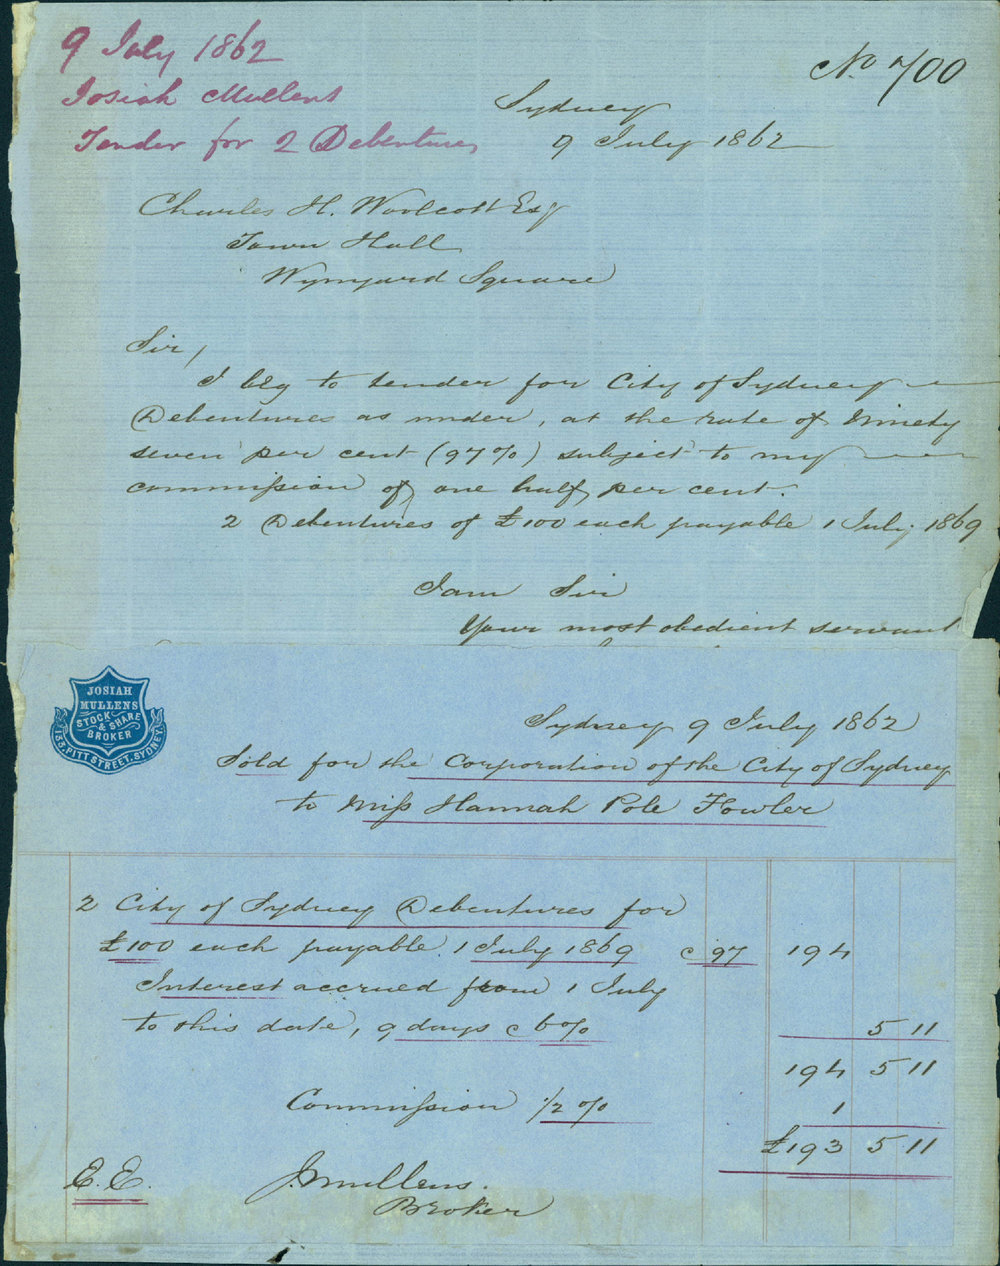 9 July 1862
Josiah Mullens
Tender for 2 Debentures
No 700
Sydney
9 July 1862
Charles H. Woolcott Esq
Town Hall
Wynyard Square
Sir,
I beg to tender for City of Sydney
Debentures as under, at the rate of Ninety
seven per cent (97%) subject to my
commission of one half per cent.
2 Debentures of £100 each payable 1 July 1869
I am Sir
Your most obedient servant
JOSIAH
MULLENS
STOCK & SHARE
BROKER
133, PITT STREET, SYDNEY.
Sydney 9 July 1862
Sold for the Corporation of the City of Sydney
to Miss Hannah Pole Fowler
2 City of Sydney Debentures for
£100 each payable 1 July 1869 @ 97 194
Interest accrued from 1 July
to this date, 9 days @ 6% 5 11
194 5 11
Commission 1/2 % 1
£193 5 11
E. E. J. Mullens.
Broker